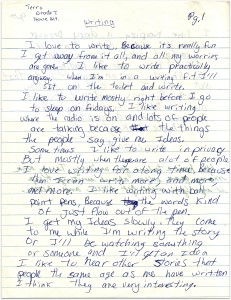 Terri
Grade 7
Pg. 1
Writing
I love to write, Because its really fun
I get away from it all, and all my worries
are gone. I like to write practically
anyway, when I'm in a writing fit I'll
sit on the toilet and write.
I like to write mostly right before I go
to sleep on fridays, I like writing
where the radio is on and lots of people
are talking because the things
the people say give me Ideas.
Some times I like to write in privacy
But mostly when there are alot of people
I love writing for along time, because
then I can write more and more
and more. I like writing with ball
point pens, Because the words kind
of just flow out of the pen.
I get my Ideas slowly they come
to me while I'm writing the story
Or I'll be watching something
or someone and I'll get an Idea
I like to hear other Stories that
people the same age as me have written
I think they are very interesting.